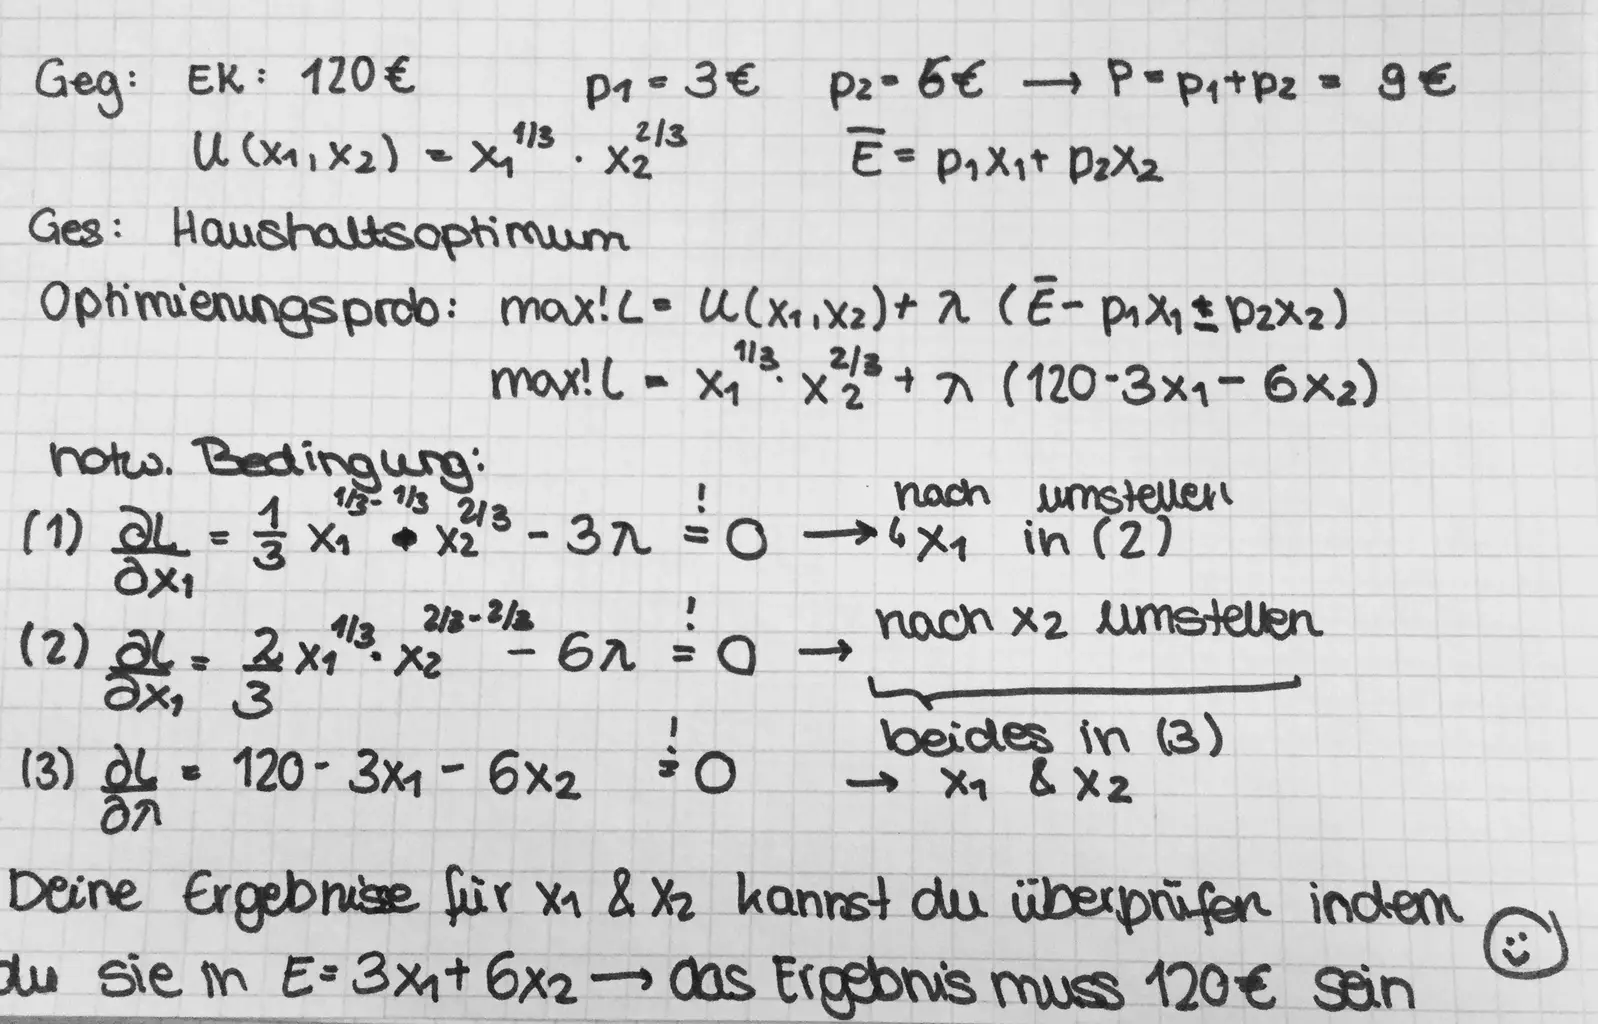 Geg: EK: 120€ p1 = 3€ p2 = 6€ → P = p1+p2 = 9€
U(x1,x2) = x1^1/3 · x2^2/3 E̅ = p1x1+ p2x2
Ges: Haushaltsoptimum
Optimierungsprob: max! L = U(x1,x2)+ λ (E̅ - p1x1 ± p2x2)
max! L = x1^1/3 · x2^2/3 + λ (120-3x1 - 6x2)
notw. Bedingung:
(1) ∂L/∂x1 = 1/3 x1^1/3-1/3 · x2^2/3 - 3λ != 0 → nach umstellen
↳ x1 in (2)
(2) ∂L/∂x1 = 2/3 x1^1/3 · x2^2/3-2/3 - 6λ != 0 → nach x2 umstellen
beides in (3)
(3) ∂L/∂λ = 120 - 3x1 - 6x2 != 0 → x1 & x2
Deine Ergebnisse für x1 & x2 kannst du überprüfen indem
du sie in E = 3x1 + 6x2 → das Ergebnis muss 120€ sein